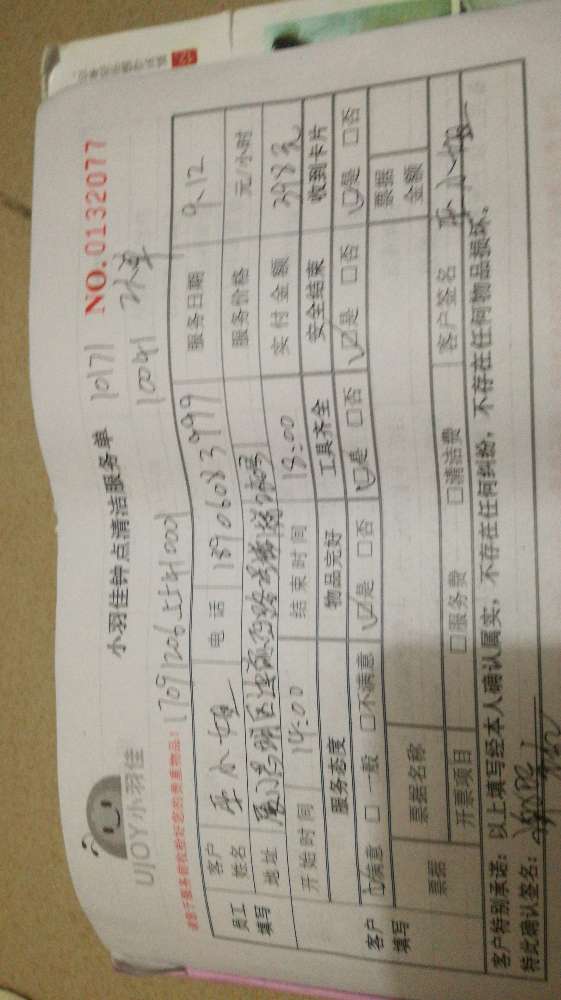 UJOY小羽佳
小羽佳钟点清洁服务单 10171 NO.0132077
10091
请您于服务前收拾好您的贵重物品!
员工填写 客户姓名 巫小姐 电话 18906083999 服务日期 9.12
地址 服务价格 元/小时
开始时间 14:00 结束时间 18:00 实付金额 398元
客户填写 服务态度 物品完好 工具齐全 安全结束 收到卡片
☑满意 □一般 □不满意 ☑是 □否 ☑是 □否 ☑是 □否 ☑是 □否
票据 票据名称 票据金额
开票项目 □服务费 □清洁费 客户签名 巫小姐
客户特别承诺: 以上填写经本人确认属实,不存在任何纠纷,不存在任何物品损坏。
特此确认签名: